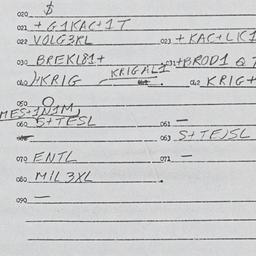 020 $
021 + G1KAC+1T
022 VOLG3KL 023 + KAC+LK1
030 BREKL81+ 031 +BROD1 Q 7
KRIGAL1
040 )+KRIG 042 KRIG+
050 O
MES+1N1M)
060 S+TESL 061 —
063 S+TE)SL
070 ENTL 071 —
080 MIL3XL
090 —